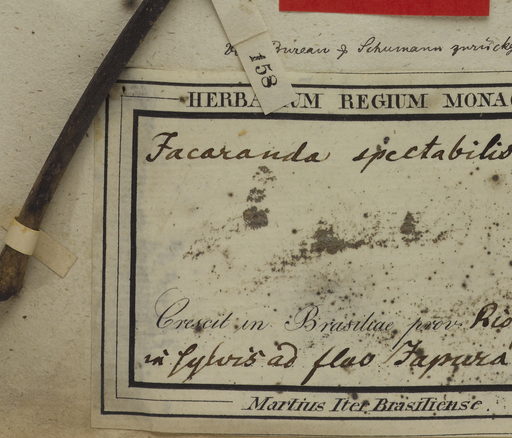 Bureau & Schumann zurück
158
HERBARIUM REGIUM MONA
Jacaranda spectabilis
Crescit in Brasiliae prov. Rio
in sylvis ad fluv Japurá
Martius Iter Brasiliense.